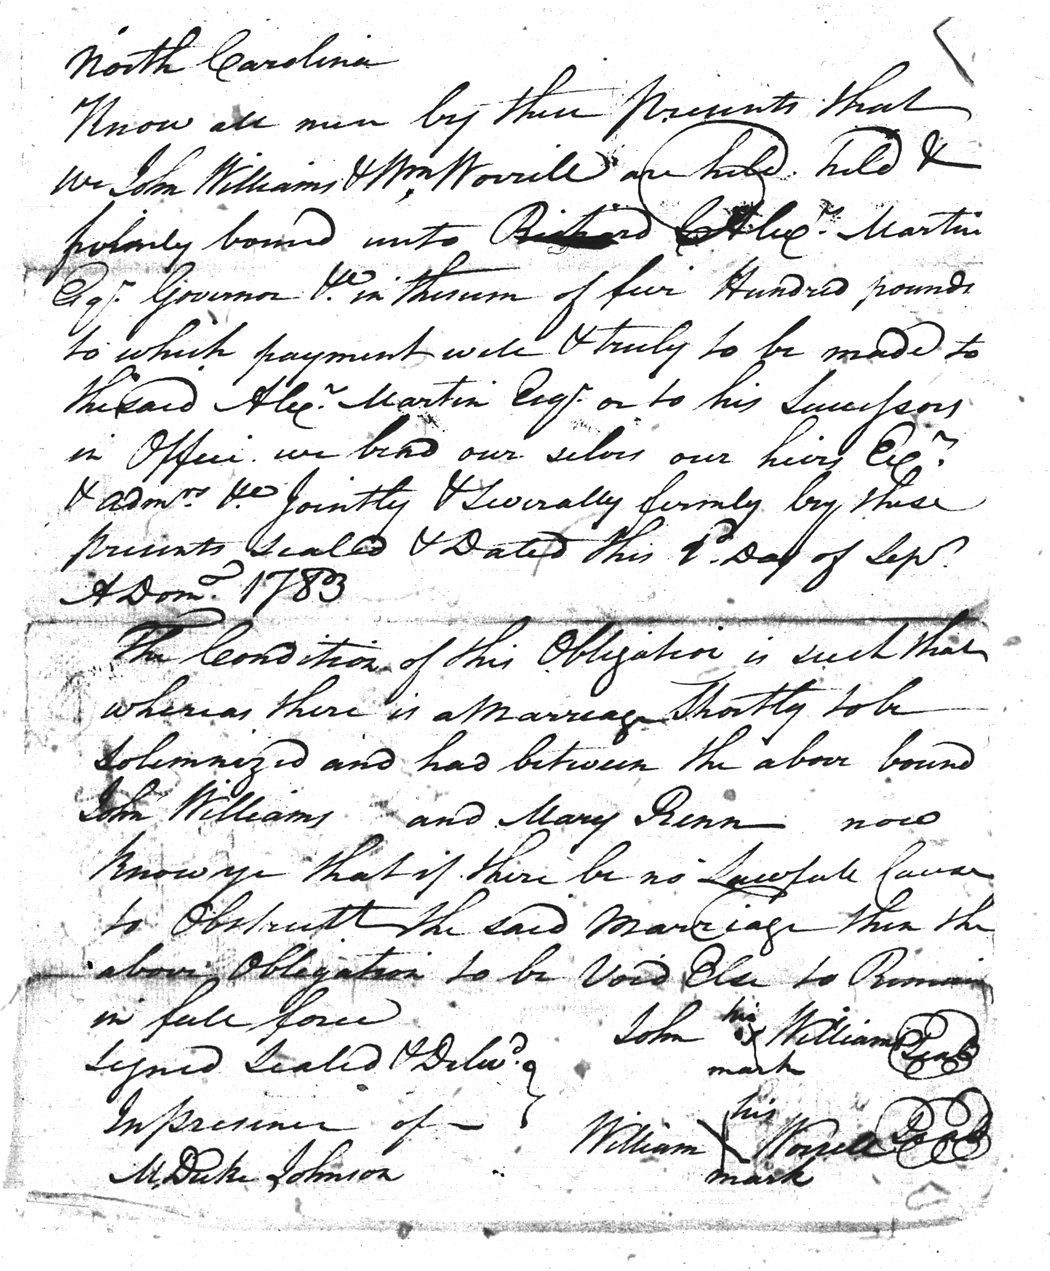 North Carolina
Know all men by these Presents that
we John Williams & Wm Worrill are held held &
firmly bound unto Richard C Alexr. Martin
Esqr. Governor &c in the sum of five Hundred pounds
to which payment well & truly to be made to
the said Alexr. Martin Esqr. or to his Sucessors
in Office we bind our selves our heirs Exrs.
& admnrs &c Jointly & Severally firmly by these
presents Sealed & Dated this Day of Sepr.
A Domo. 1783
The Condition of this Obligation is such that
whereas there is a Marreage Shortly to be
Solemnized and had between the above bound
John Williams and Mary Renn now
Know ye that if there be no Lawfull Cause
to Obstructt the said Marreiage then the
above Obligation to be Void Else to Remain
in full force
Signed Sealed & Delivd.
In presence of
M. Duke Johnson
John his x mark Williams Seal
William his X mark Worrell Seal